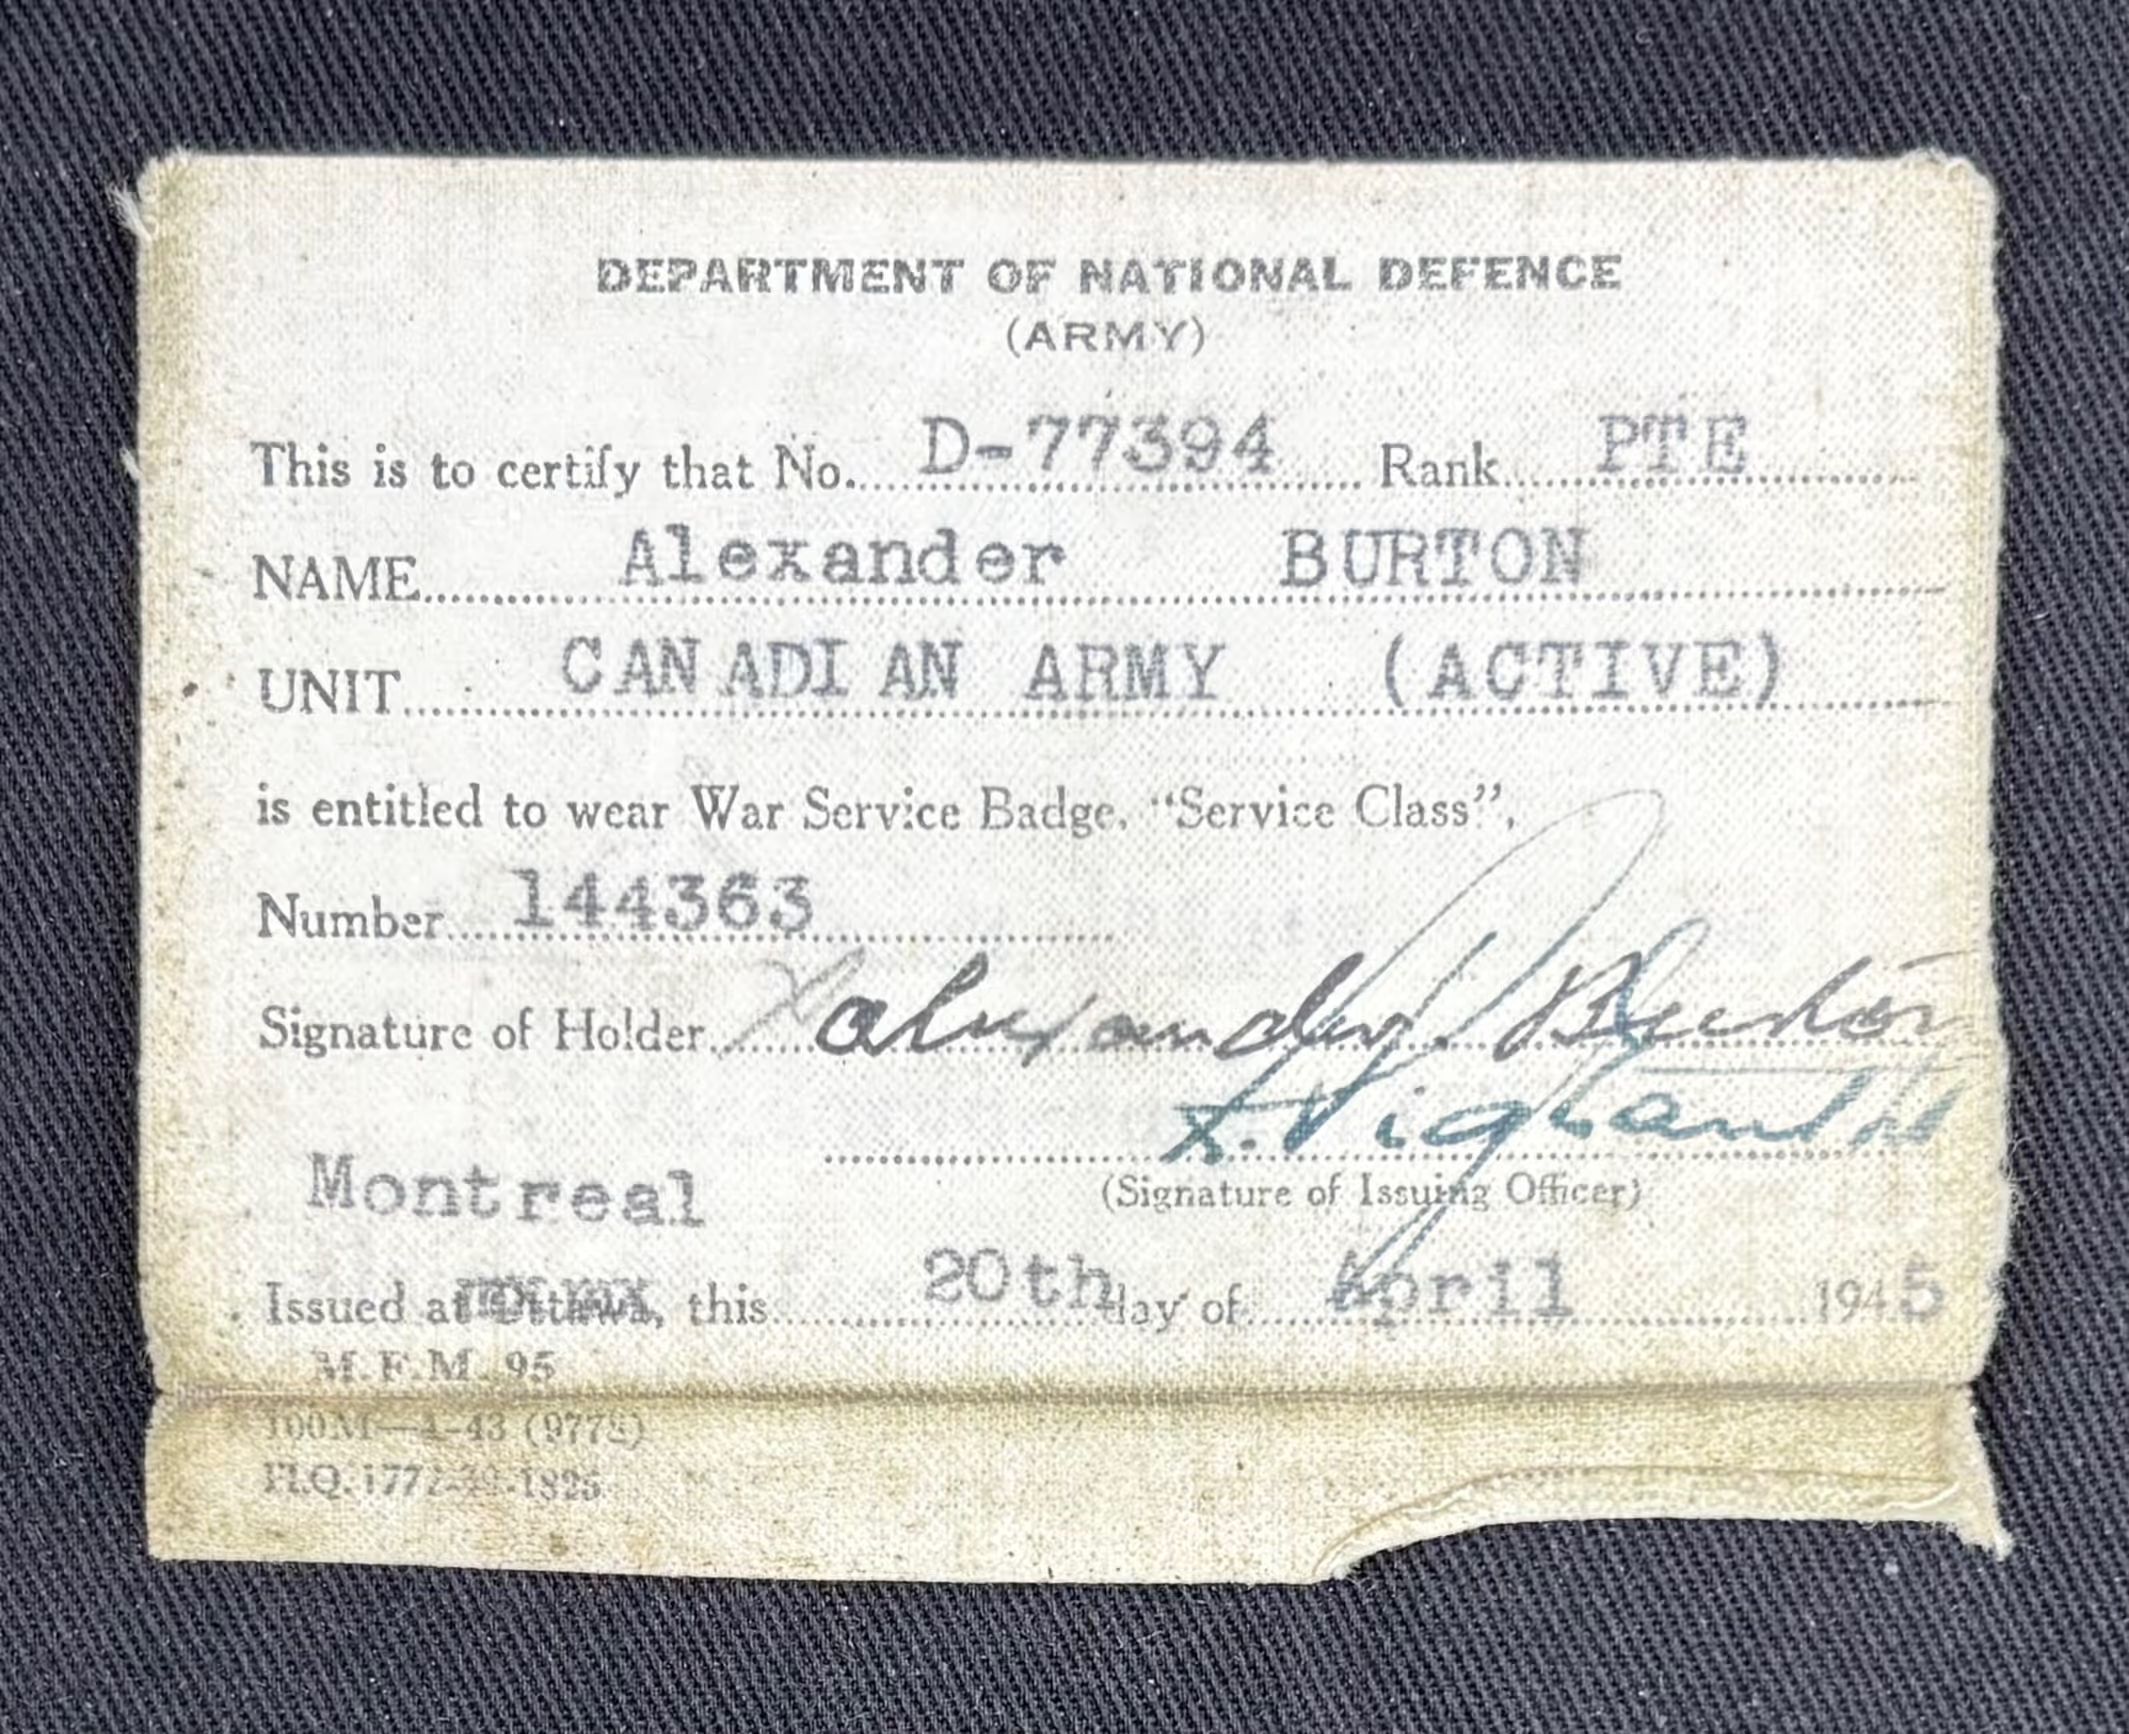 DEPARTMENT OF NATIONAL DEFENCE
(ARMY)
This is to certify that No. D-77394 Rank PTE
NAME Alexander BURTON
UNIT CANADIAN ARMY (ACTIVE)
is entitled to wear War Service Badge, "Service Class",
Number 144363
Signature of Holder X Alexander Burton
(Signature of Issuing Officer)
Montreal
Issued at Ottawa, this 20th day of April 1945
M.F.M. 95
100M—4-43 (9778)
H.Q. 1772-39-1825